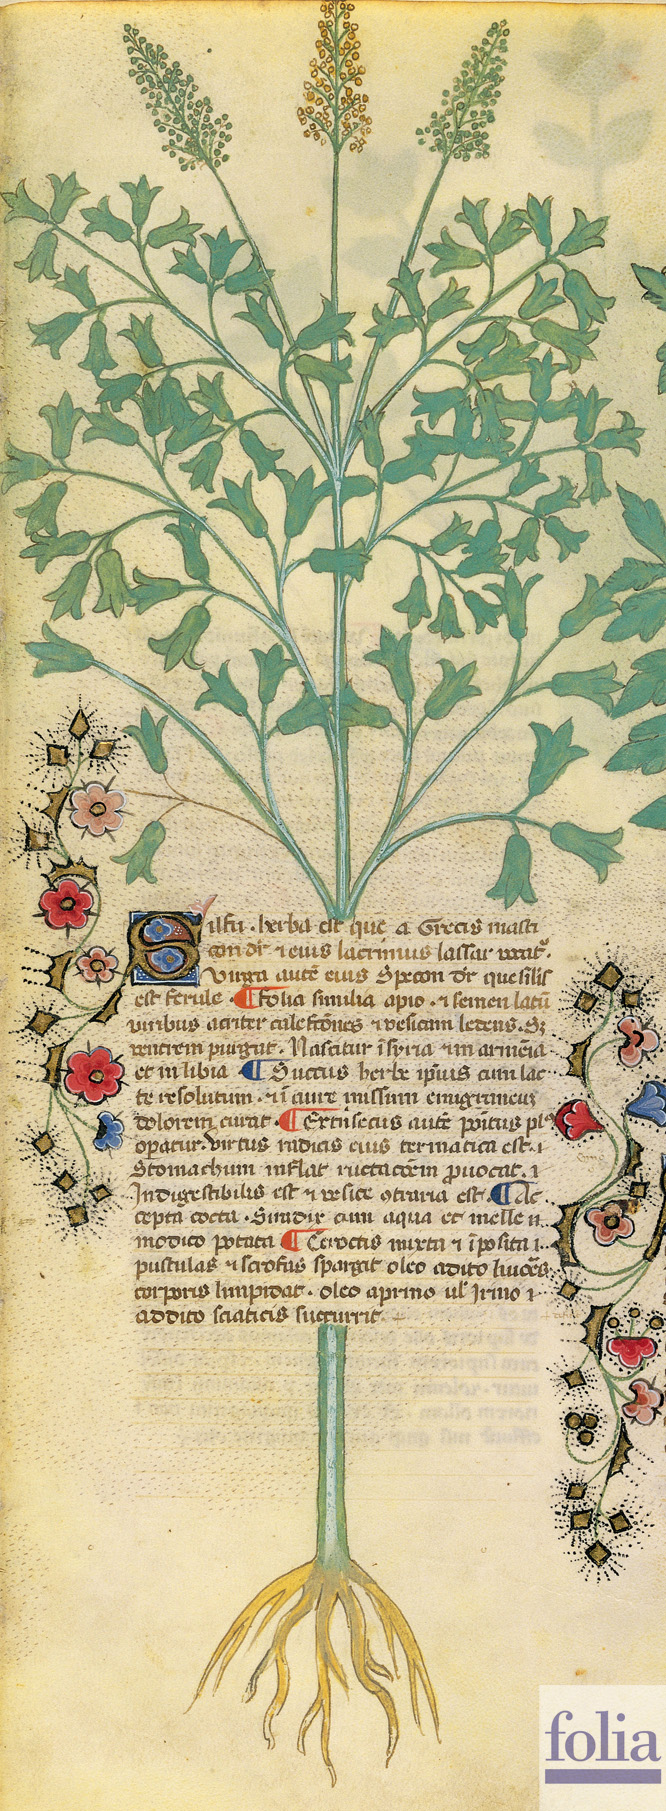 Silfu . herba est que a Grecis masti
con dr̄ ⁊ eius lacrimus lassar uocat᷑.
Virga autē eius Specon dr̄ que silis
est ferule . ¶ folia similia apio . ⁊ semen latū
uiribus acriter calefcōnes ⁊ uesicam ledens . Sʒ
uentrem purgat . Nascitur ī syria ⁊ in armēia
et in libia ¶ Succus herbe ip̄ius cum lac
te resolutum . ⁊ ī aure missum emigraneus
dolorem curat . ¶ Extīsecus autē poītus pl
opatur . virtus radicis eius termatica est . ⁊
Stomachum inflat ructacōem ꝓuocat . ⁊
Indigestibilis est ⁊ uesice ꝯtraria est . ¶ Ac
cepta cocta . Siradix cum aqua et melle ī
modico potata ¶ Cerocis mixta ⁊ īposita ⁊
pustulas ⁊ scrofas spargit oleo adito liuoēs
corporis limpidat . oleo aprino ul̓ Irino ⁊
addito sciaticis succurrit .
folia